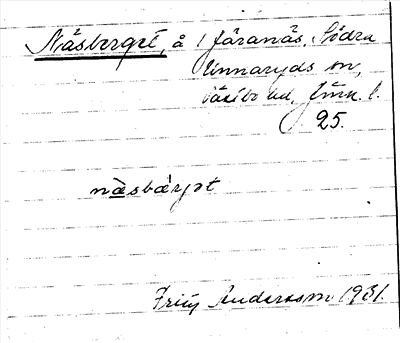 Näsberget, å 1 Järanäs, Södra
Unnaryds sn,
Västbo hd, Jönk. l.
25.
näsbærjət
Fritz Andersson 1931.